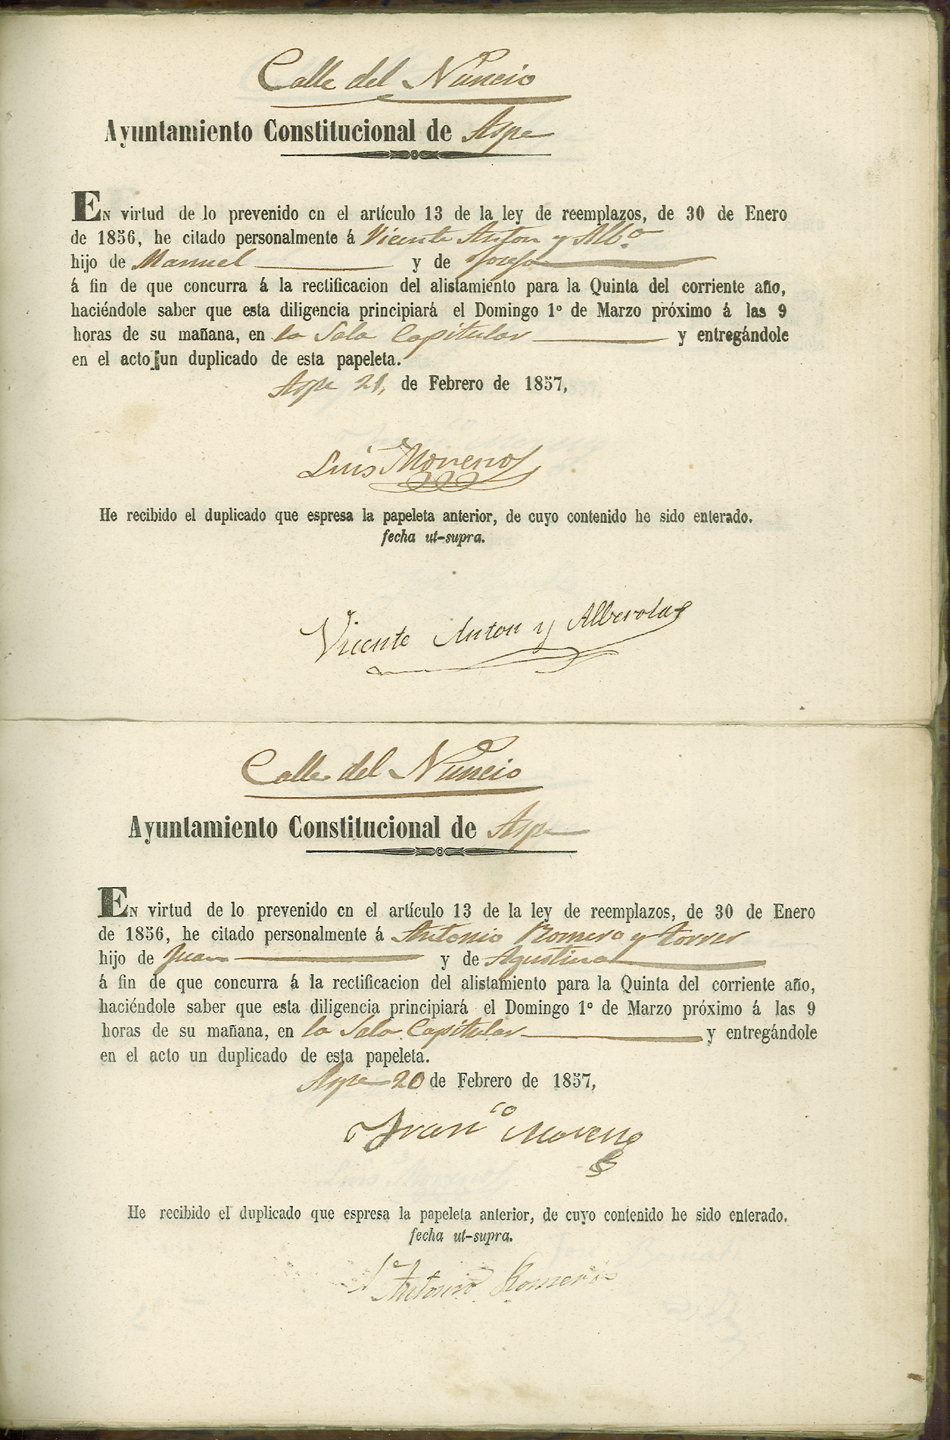 Calle del Nuncio
Ayuntamiento Constitucional de Aspe
En virtud de lo prevenido en el artículo 13 de la ley de reemplazos, de 30 de Enero
de 1856, he citado personalmente á Vicente Anton y Alb.ª
hijo de Manuel y de Josefa
á fin de que concurra á la rectificacion del alistamiento para la Quinta del corriente año,
haciéndole saber que esta diligencia principiará el Domingo 1º de Marzo próximo á las 9
horas de su mañana, en la Sala Capitular y entregándole
en el acto un duplicado de esta papeleta.
Aspe 21, de Febrero de 1857,
Luis Moreno
He recibido el duplicado que espresa la papeleta anterior, de cuyo contenido he sido enterado.
fecha ut-supra.
Vicente Anton y Alberola
Calle del Nuncio
Ayuntamiento Constitucional de Aspe
En virtud de lo prevenido en el artículo 13 de la ley de reemplazos, de 30 de Enero
de 1856, he citado personalmente á Antonio Romero y Torres
hijo de Juan y de Agustina
á fin de que concurra á la rectificacion del alistamiento para la Quinta del corriente año,
haciéndole saber que esta diligencia principiará el Domingo 1º de Marzo próximo á las 9
horas de su mañana, en la Sala Capitular y entregándole
en el acto un duplicado de esta papeleta.
Aspe 20 de Febrero de 1857,
Franco Moreno
He recibido el duplicado que espresa la papeleta anterior, de cuyo contenido he sido enterado.
fecha ut-supra.
Antonio Romero